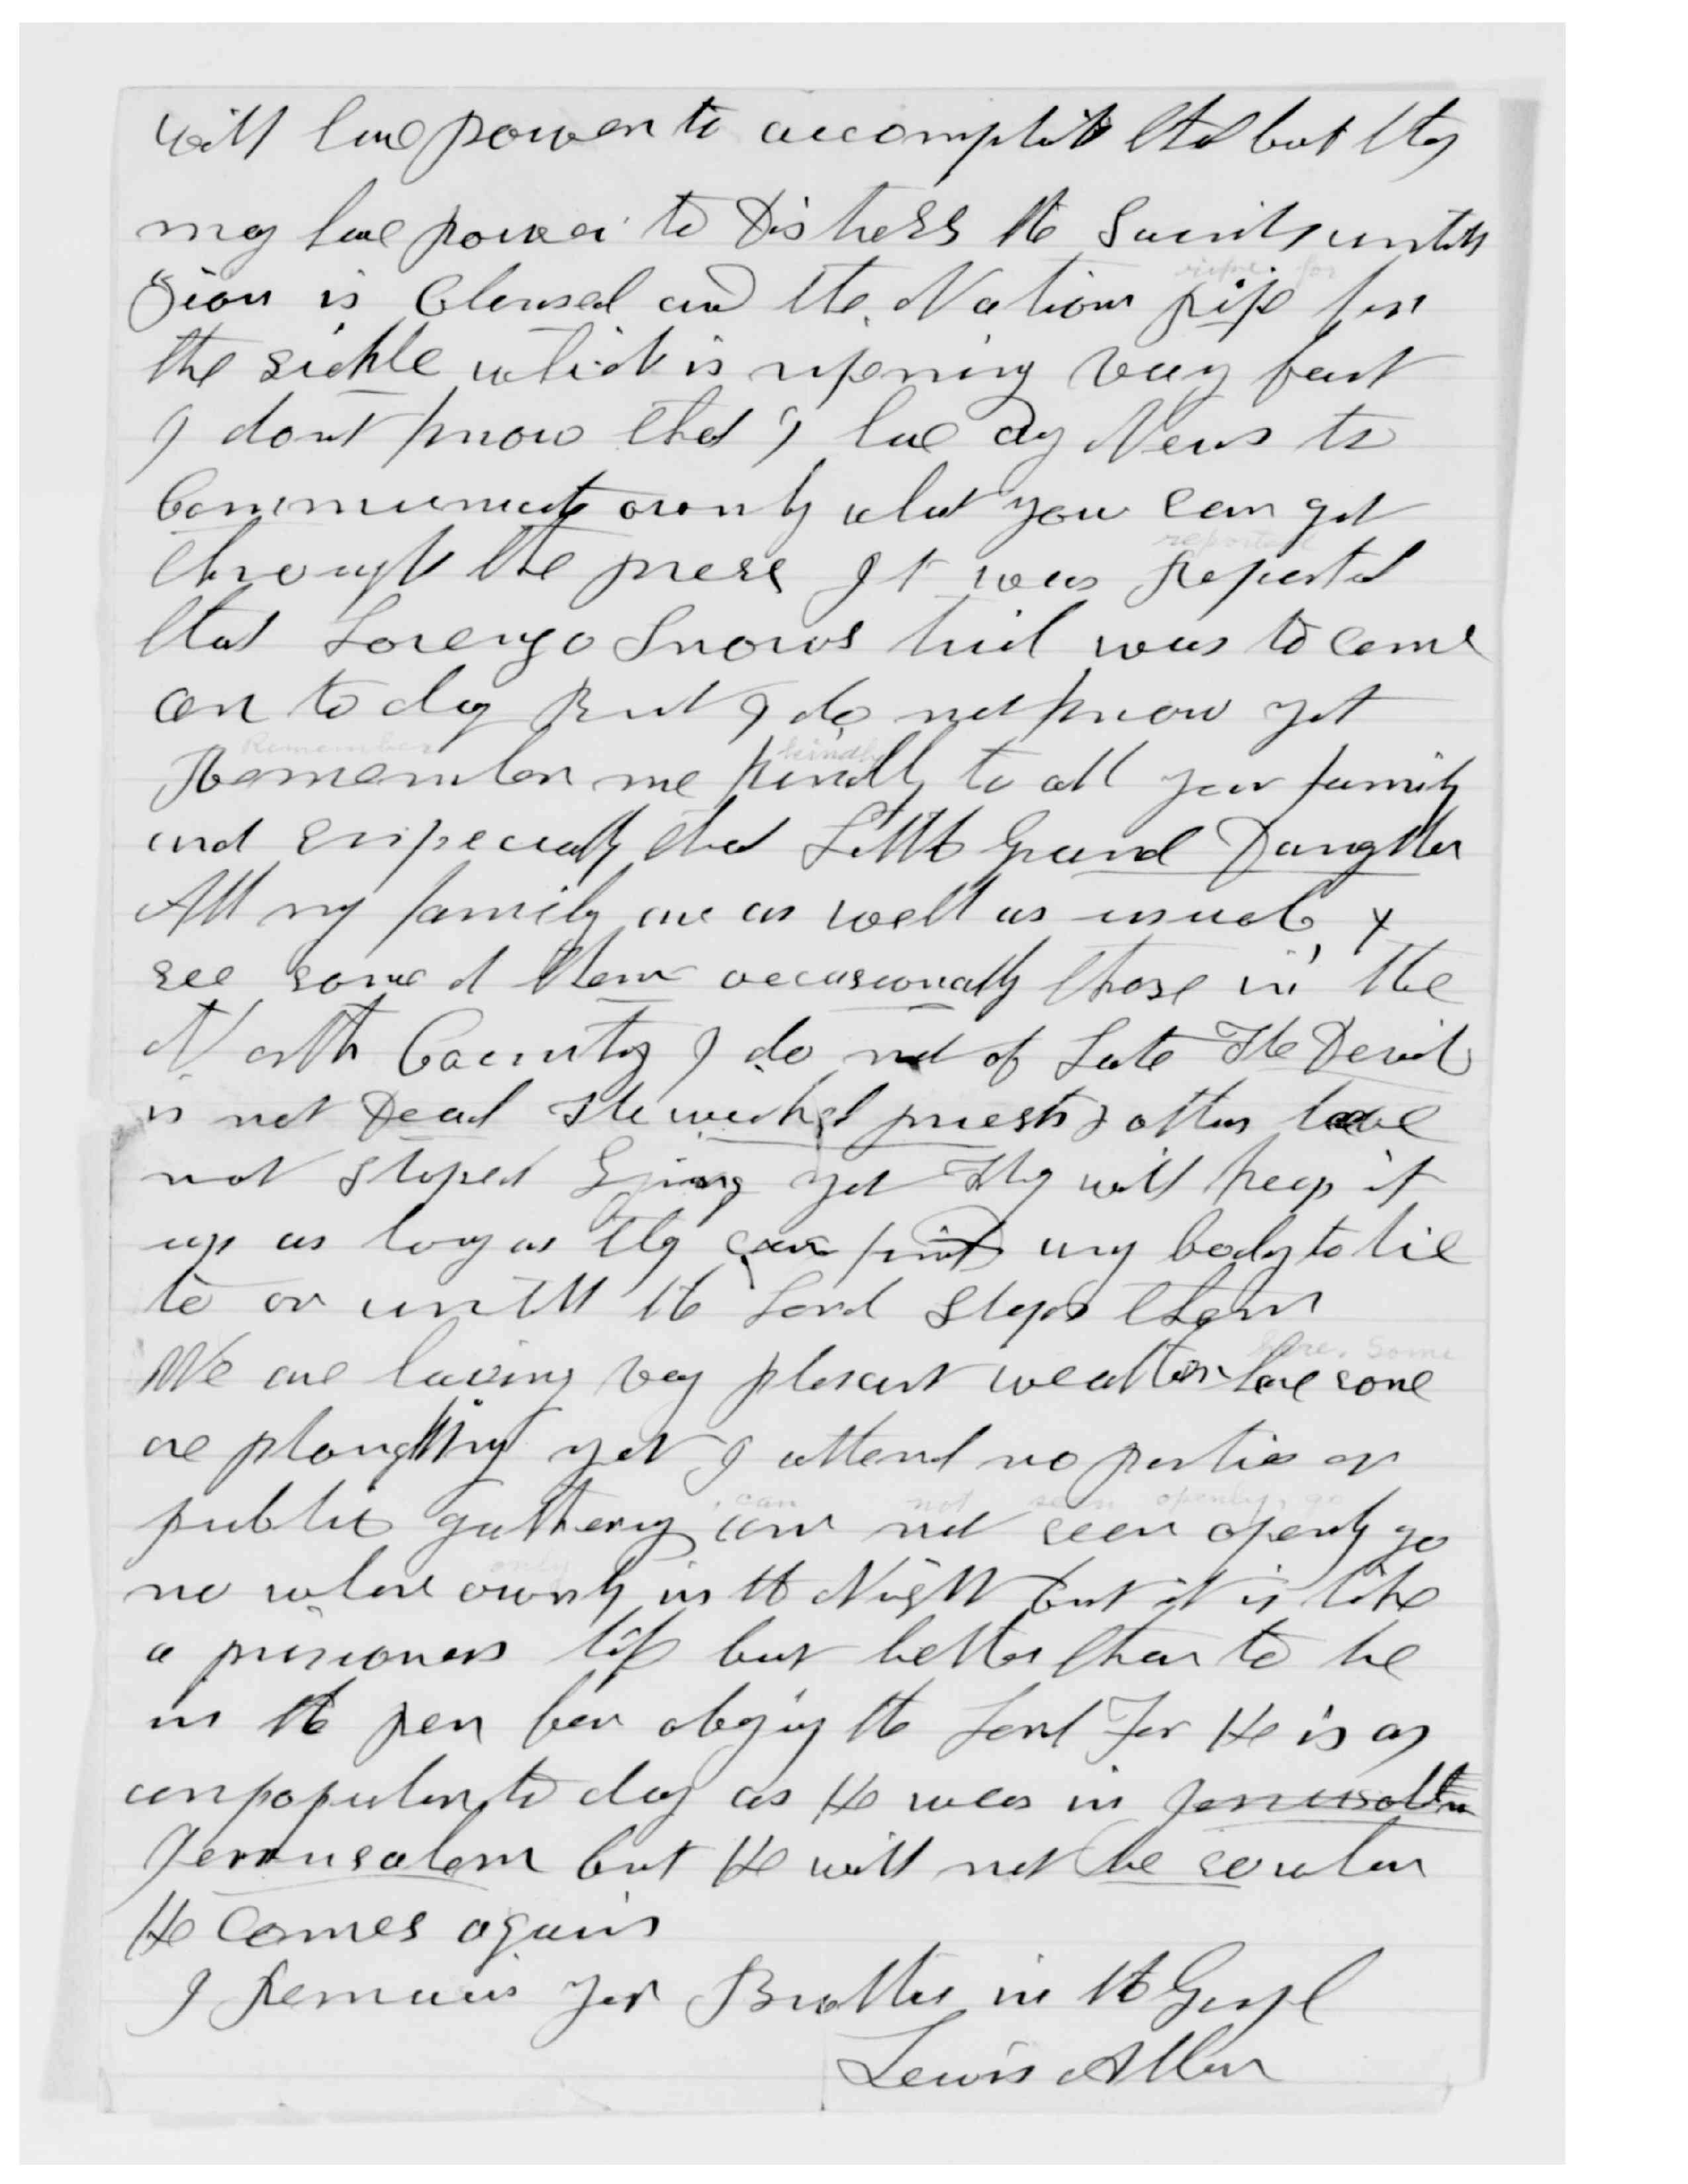 will have power to accomplish that but they
may have power to Distress the Saints untill
Zion is Clensed and the Nations ripe for
the sickle which is ripening very fast
I dont know that I have any News to
Communicate ownly what you can get
through the press It was Reported
that Lorenzo Snows trial was to come
on to day But I do not know yet
Remember me kindly to all your family
and esspecially that Little Grand Daughter
All my family are as well as usual, I
see some of them occasionally those in the
North Country I do not of Late The Devil
is not Dead The wicked priests & others have
not stoped Lying yet They will keep it
up as long as they can find any body to lie
to or untill the Lord stops them
We are having very plesant weather here some
are ploughing yet I attend no parties or
public gathering can not seen openly go
no where ownly in the Night but it is like
a prisioners life but better than to be
in the pen for obeying the Lord For He is as
unpopular to day as He was in Jerrusalem
Jerrusalem but He will not be so when
He comes again
I Remain your Brother in the Gospel
Lewis Allen